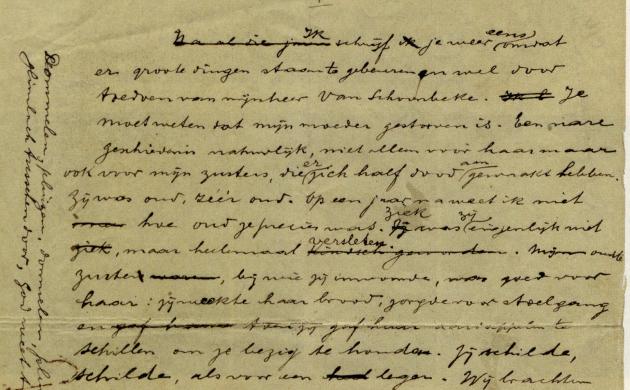 Na al die jaren Ik schrijf ik je weer eens omdat
er groote dingen staan te gebeuren en wel door
toedoen van mijnheer Van Schoonbeke. Je
moet weten dat mijn moeder gestorven is. Een nare
geschiedenis natuurlijk, niet alleen voor haar maar
ook voor mijn zusters, die er zich half dood aan gewaakt hebben.
Zij was oud, zéér oud. Op een jaar na weet ik niet
hoe oud ze precies was. Ziek Zij was zij eigenlijk niet
ziek, maar heelemaal versleten. kindsch geworden. Mijn oudste
zuster, bij wie zij inwoonde, was goed voor
haar: zij weekte haar brood, zorgde voor stoelgang
en gaf haar aardappelen te
schillen om ze bezig te houden. Zij schilde,
schilde, als voor een leger. Wij brachten
Dommelen, dommelen,
tusschen door, God weet